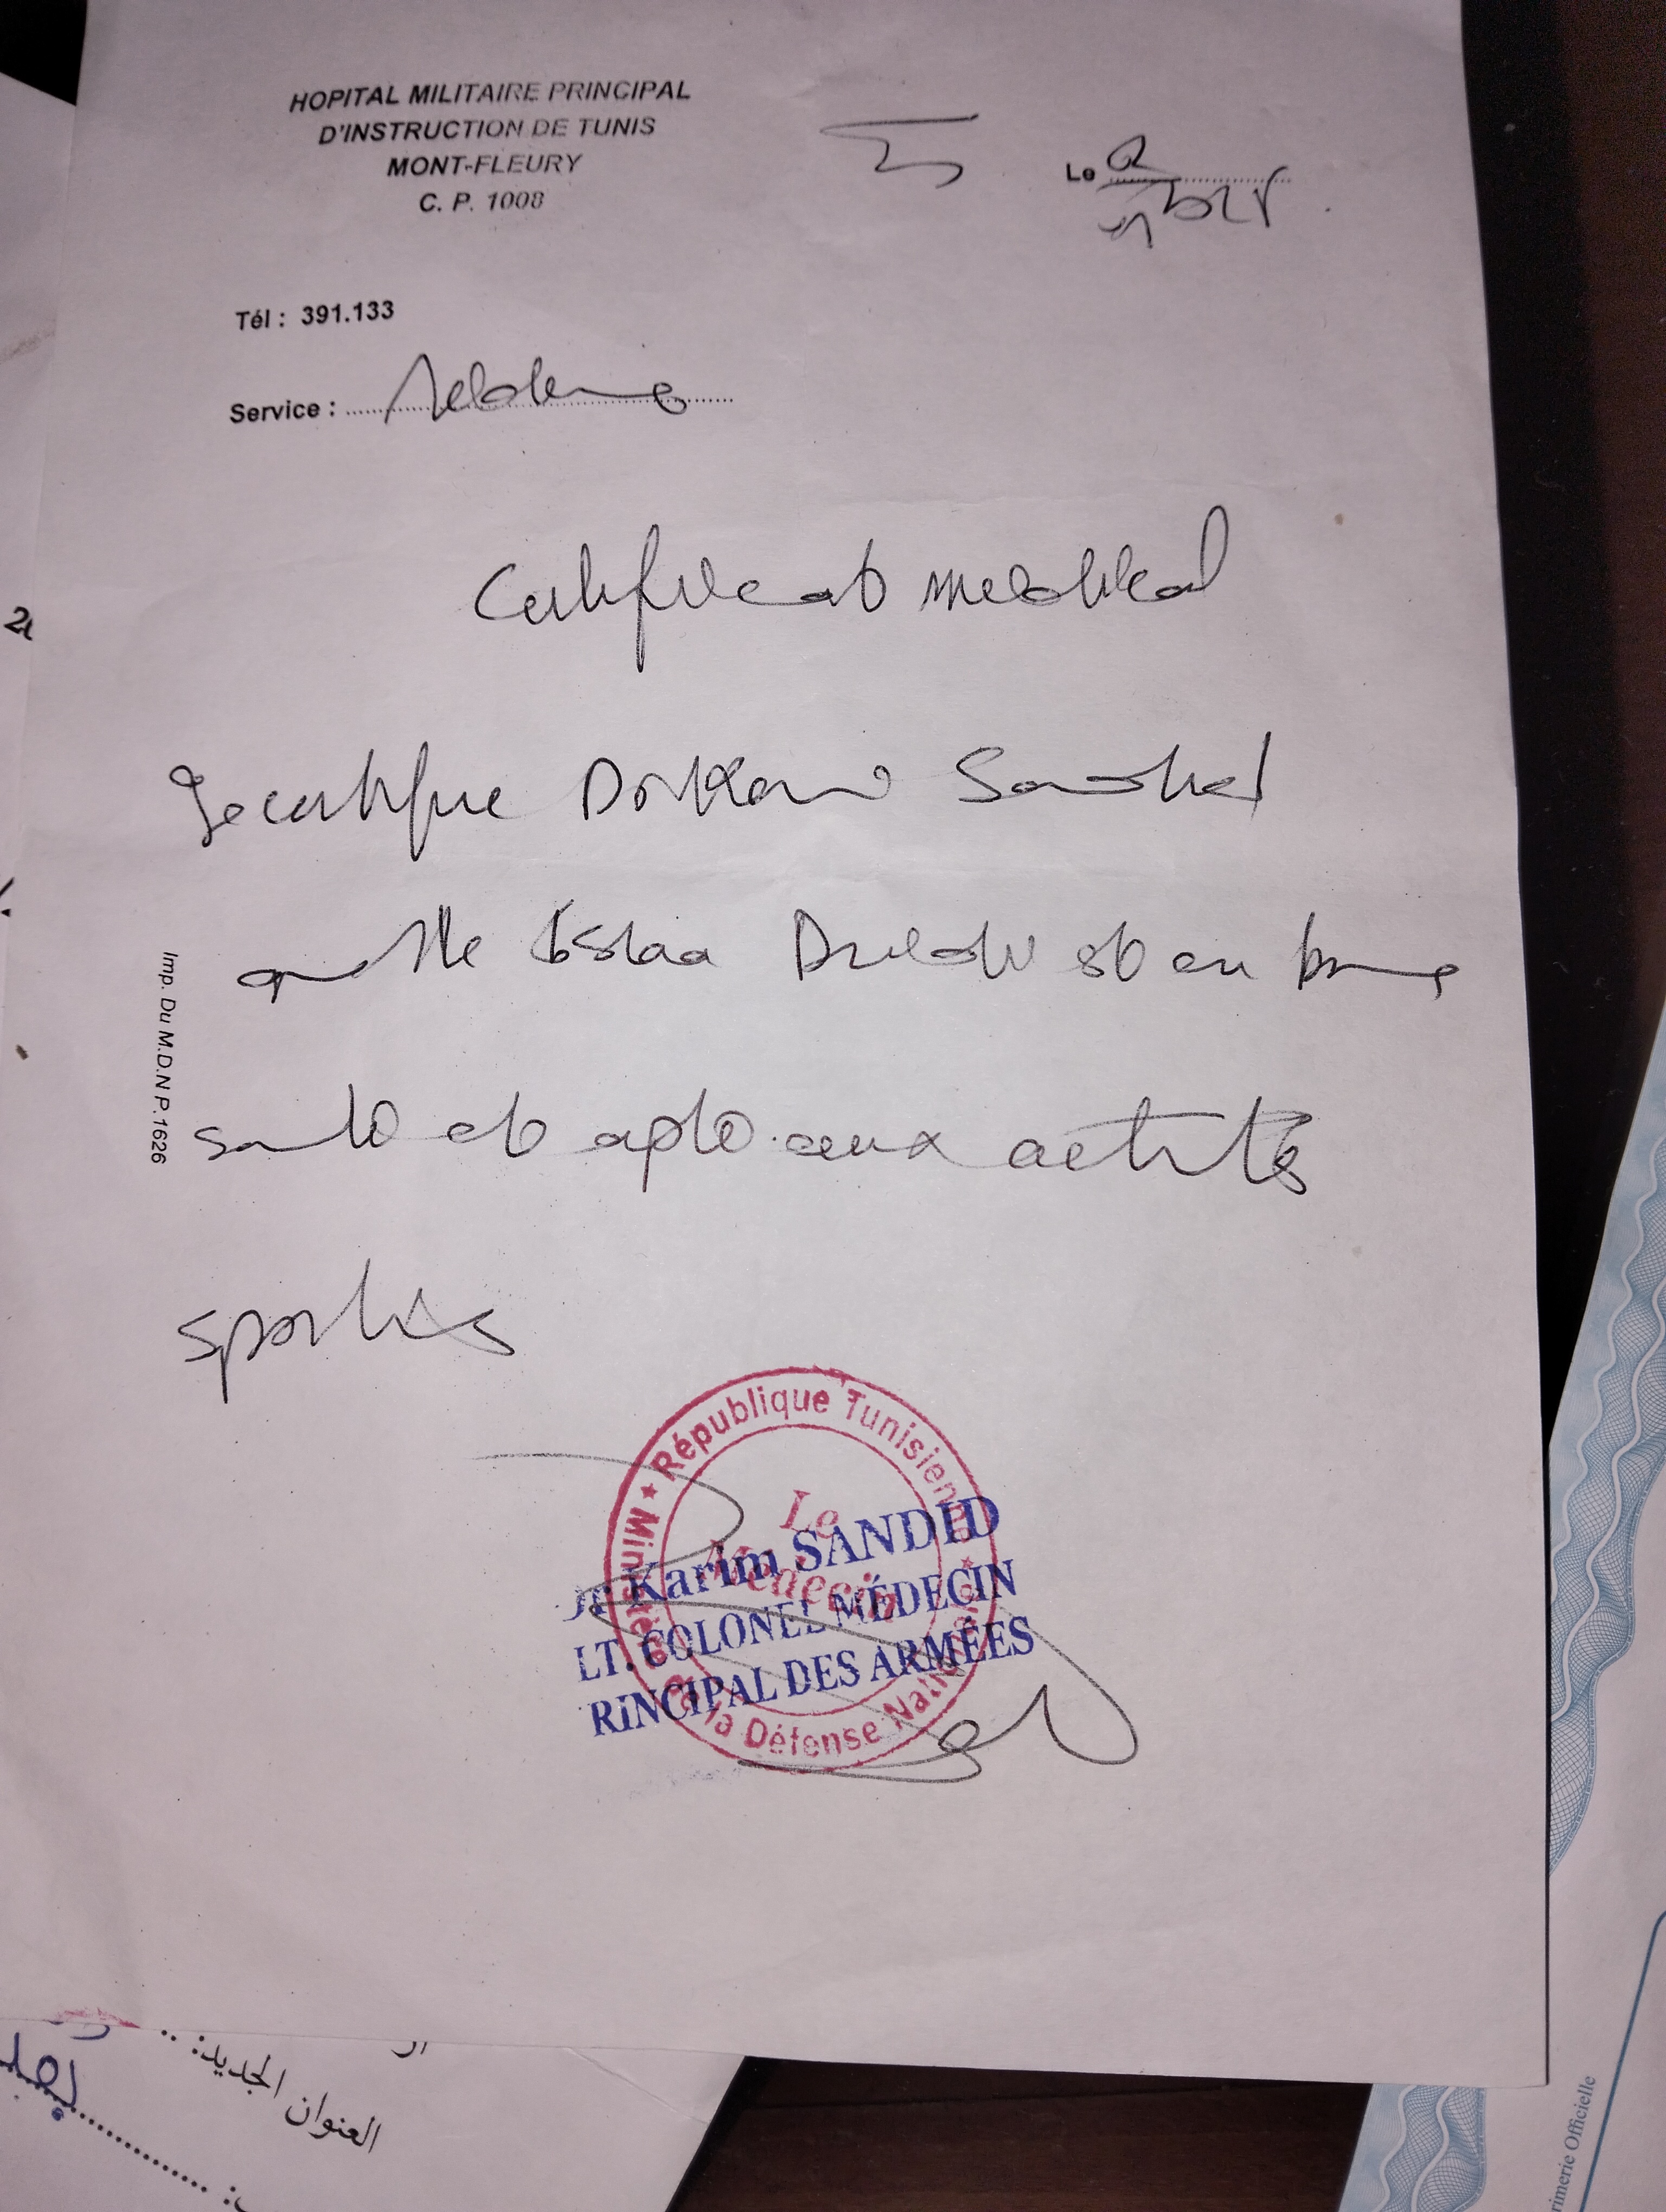 HOPITAL MILITAIRE PRINCIPAL
D'INSTRUCTION DE TUNIS
MONT-FLEURY
C. P. 1008
Le
Tél : 391.133
Service :
Certificat medical
Je certifie Dr Karim Sandid
que Mlle est en bonne
santé et apte aux activités
sportives
Imp. Du M.D.N P.1626
République Tunisienne
Ministère de la Défense Nationale
Le Médecin
Dr Karim SANDID
LT. COLONEL MÉDECIN
RINCIPAL DES ARMÉES
العنوان الجديد:
rimerie Officielle